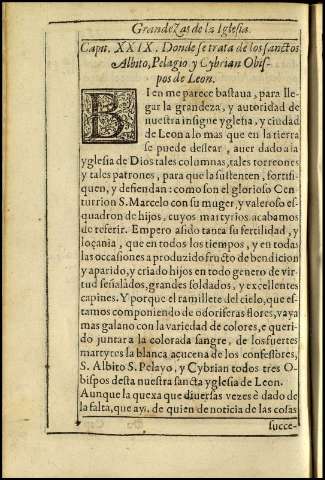 Grandezas de la Iglesia.
Capit. XXIX. Donde se trata de los sanctos
Albito, Pelagio, y Cybrian Obis-
pos de Leon.
BIen me parece bastaua, para lle-
gar la grandeza, y autoridad de
nuestra insigne yglesia, y ciudad
de Leon a lo mas que en la tierra
se puede dessear, auer dado a la
yglesia de Dios tales columnas, tales torreones
y tales patrones, para que la sustenten, fortifi-
quen, y defiendan: como son el glorioso Cen-
turrion S. Marcelo con su muger, y valeroso es-
quadron de hijos, cuyos martyrios acabamos
de referir. Empero a sido tanta su fertilidad, y
loçania, que en todos los tiempos, y en todas
las occasiones a produzido fructo de bendicion
y a parido, y criado hijos en todo genero de vir-
tud señalados, grandes soldados, y excellentes
capines. Y porque el ramillete del cielo, que es-
tamos componiendo de odoriferas flores, vaya
mas galano con la variedad de colores, e queri-
do juntar a la colorada sangre, de los fuertes
martyres la blanca açucena de los confessores,
S. Albito S. Pelayo, y Cybrian todos tres O-
bispos desta nuestra sancta yglesia de Leon.
Aunque la quexa que diuersas vezes è dado de
la falta, que ay, de quien de noticia de las cosas
succe-